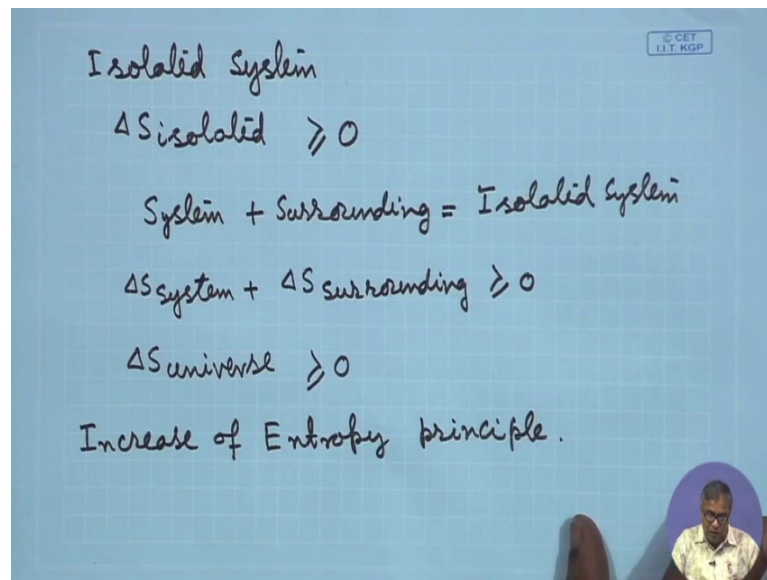 © CET
I.I.T. KGP
Isolated System
ΔS isolated ≥ 0
System + Surrounding = Isolated System
ΔS system + ΔS surrounding ≥ 0
ΔS universe ≥ 0
Increase of Entropy principle.